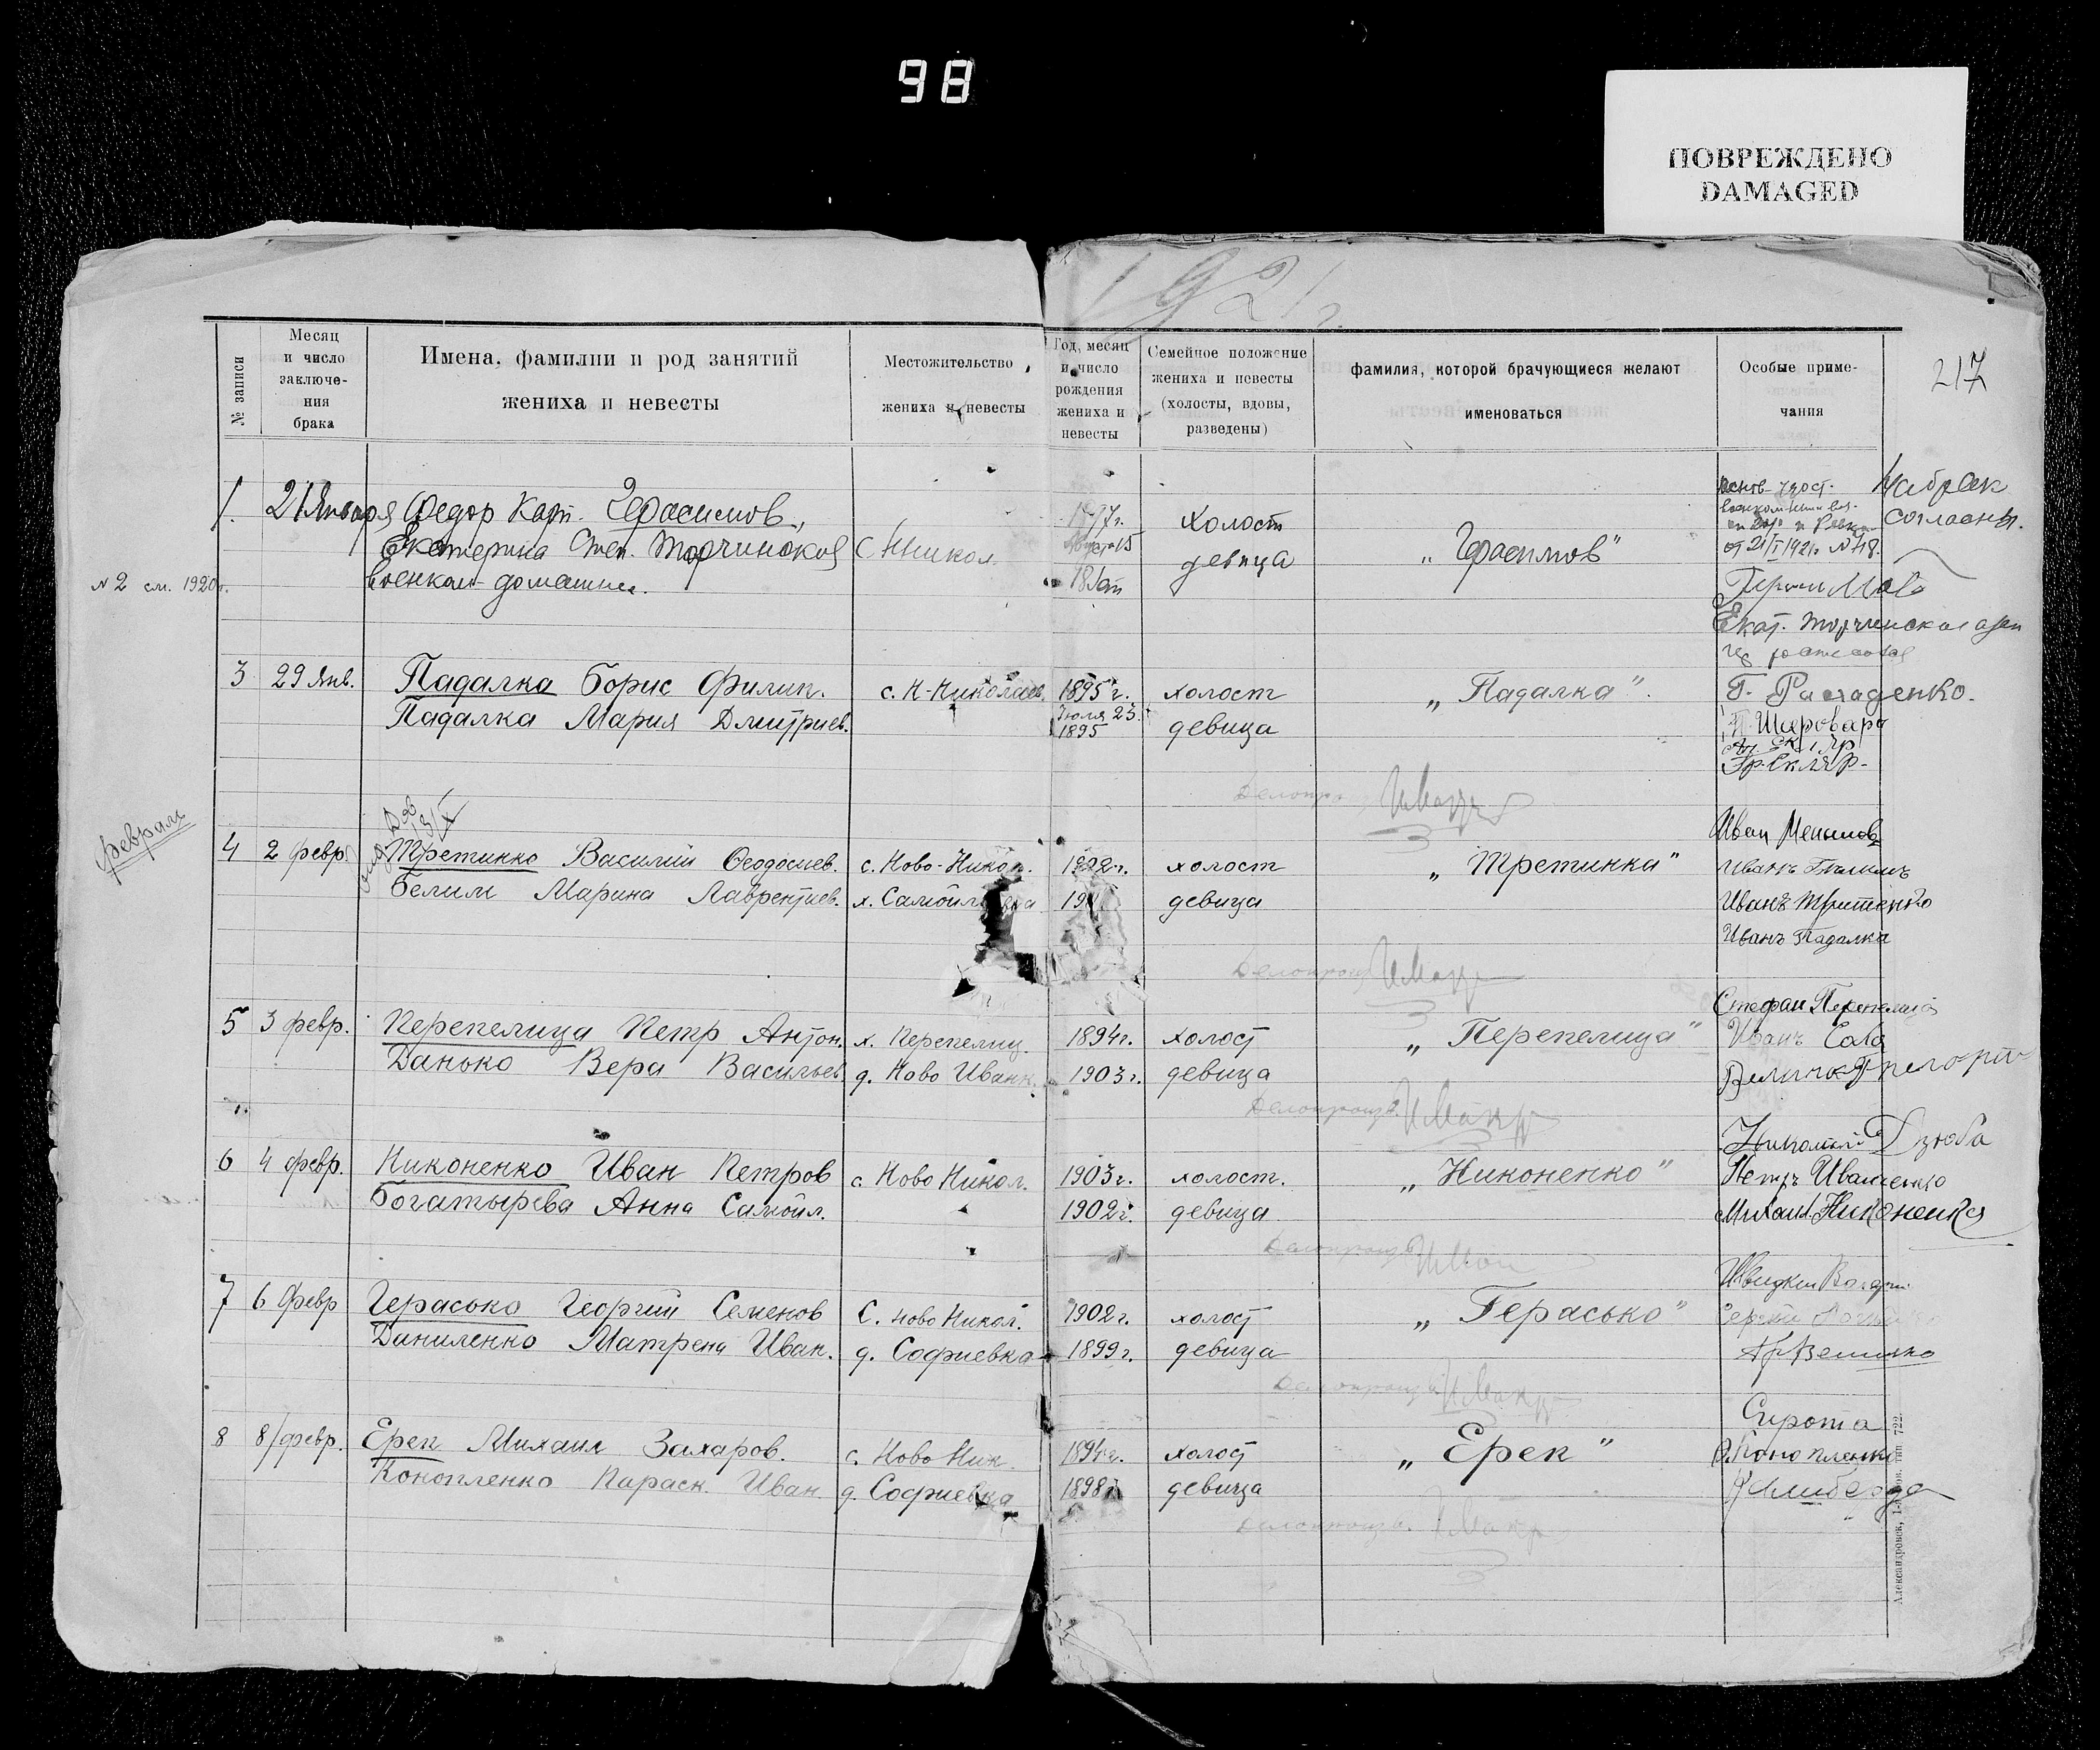 98
ПОВРЕЖДЕНО
DAMAGED
1921 г.
217
№ записи
Месяц и число заключе-ния брака
Имена, фамилии и род занятий жениха и невесты
Местожительство жениха и невесты
Год, месяц и число рождения жениха и невесты
Семейное положение жениха и невесты (холосты, вдовы, разведены)
фамилия, которой брачующиеся желают именоваться
Особые приме-чания
1. 21 Января Федор Карп. Герасимов, холост
Екатерина Степ. Торчинская с. Никол. девица „Герасимов"
военком - домашн.
На брак согласны.
от 21/I 1921 г. № 48.
Екат. Торчинская
№ 2 см. 1920 г.
3 29 Янв. Падалка Борис Филип. с. Н-Николаев. 1895 г. холост „Падалка".
Падалка Мария Дмитриев. Июля 23. 1895 девица
Шаровара
Гр. Скляр
февраль
4 2 февр. Третинко Василий Феодосиев. с. Ново-Никол. 1922 г. холост „Третинка"
Белим Марина Лаврентиев. х. Самойл 19 девица
Иванъ Падалка
5 3 февр. Перепелица Петр Антон. х. Перепелиц. 1894 г. холост „Перепелица"
Данько Вера Васильев. д. Ново Иванк. 1903 г. девица
Делопроизв.
Стефан Перепелица
6 4 февр. Никоненко Иван Петров с. Ново Никол. 1903 г. холост. „Никоненко"
Богатырева Анна Самойл. 1902 г. девица
Делопроизв.
Дзюба
Петръ Иващенко
Михаил Никоненко
7 6 Февр Герасько Георгий Семенов С. Ново Никол. 1902 г. холост „Герасько"
Даниленко Матрена Иван. д. Софиевка 1899 г. девица
Делопроизв.
Величко
8 8/февр. Ерек Михаил Захаров. с. Ново Ник. 1894 г. холост „Ерек"
Конопленко Параск. Иван. д. Софиевка 1898 г. девица
Делопроизв.
Сирота
Конопленко
Александровск, тип 722.